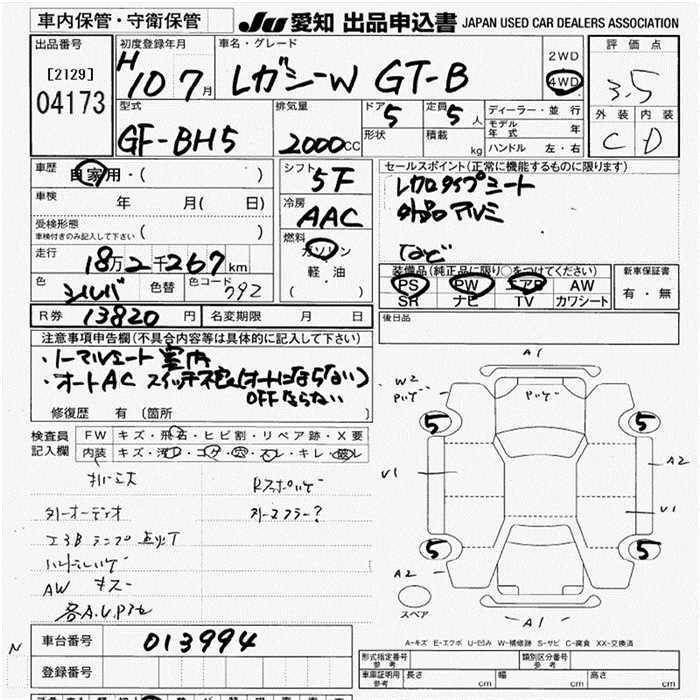 車内保管・守衛保管
JU 愛知 出品申込書 JAPAN USED CAR DEALERS ASSOCIATION
出品番号
[2129]
04173
初度登録年月
H 10 7月
車名・グレード
レガシーW GT-B
2WD
4WD
評価点
3.5
外装 内装
C D
型式
GF-BH5
排気量
2000CC
ドア 5
形状
定員 5人
積載 kg
ディーラー・並行
モデル年式 年
ハンドル 左・右
車歴
自家用・( )
車検 年 月( 日)
受検形態
車検付きのみ記入して下さい ( )
走行 18万2千267km
色 シルバ 色替 色コード 792
R券 13820円 名変期限 月 日
シフト
5F
冷房
AAC
燃料
ガソリン
軽・油
( ・ )
セールスポイント(正常に機能するものに限ります)
レカロタイプシート
外品アルミ
など
装備品(純正品に限り○をつけてください)
PS PW エアB AW
SR ナビ TV カワシート
新車保証書
有・無
後日品
注意事項申告欄(不具合内容等は具体的に記入して下さい)
・ノーマルシート 室内
・オートAC
OFFならない
修復歴 有 (箇所 )
検査員
記入欄
FW キズ・飛石・ヒビ割・リペア跡・X要
内装 キズ・汚レ・コゲ・穴・スレ・キレ・破レ
外オーディオ
エアBランプ点灯
AW キズ
外マフラー?
A1
W2
5
5
V1
A2
V1
5
5
A2
A1
スペア
A-キズ E-エクボ U-凹み W-補修跡 S-サビ C-腐食 XX-交換済
N
車台番号 013994
登録番号
形式指定番号
参考
類別区分番号
参考
車庫証明用
参考
長さ cm 幅 cm 高さ cm